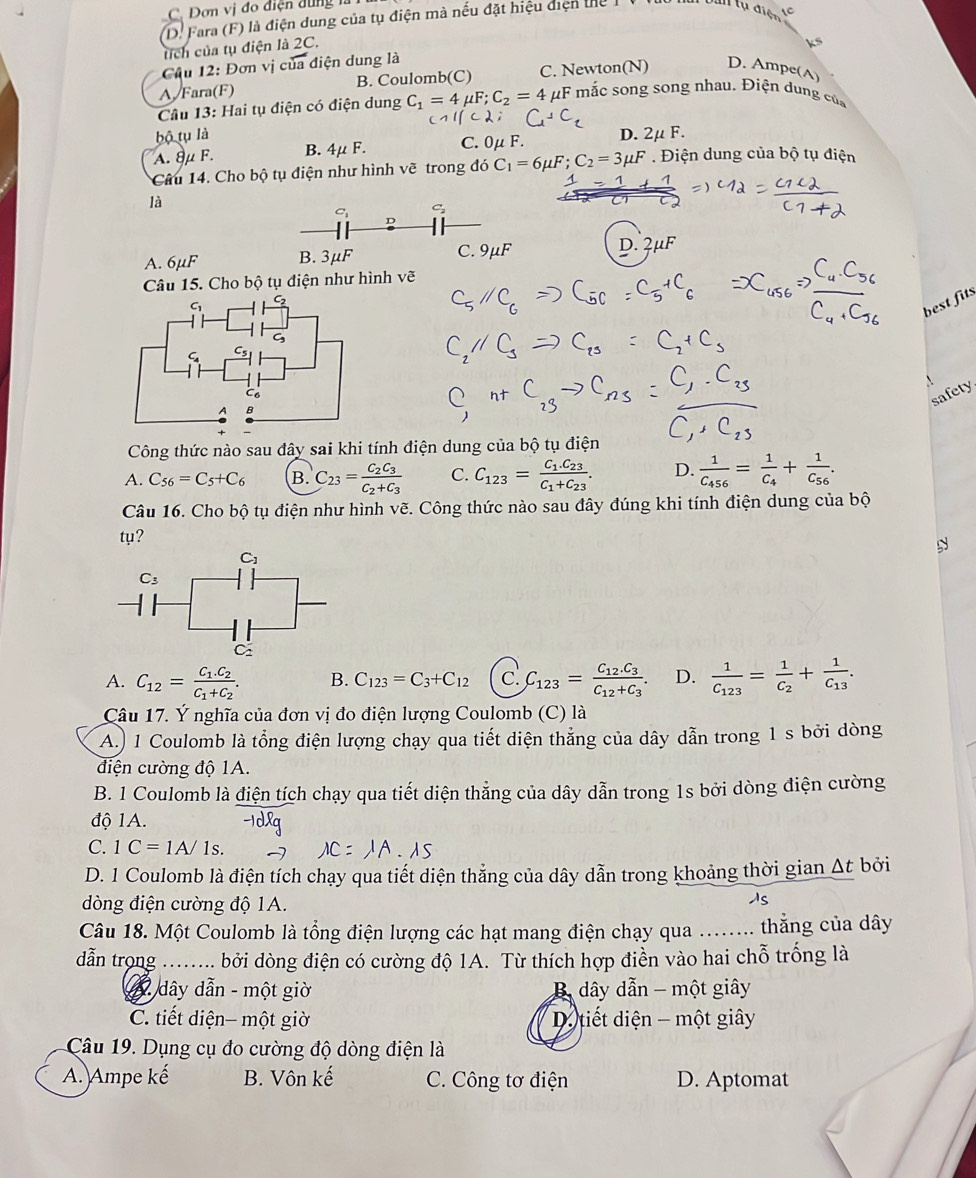 C. Đơn vị đo điện dung là
D. Fara (F) là điện dung của tụ điện mà nếu đặt hiệu điện thế 1 V
tích của tụ điện là 2C.
Câu 12: Đơn vị của điện dung là
A. Fara(F) B. Coulomb(C) C. Newton(N) D. Ampe(A)
Câu 13: Hai tụ điện có điện dung C₁ = 4 μF; C₂ = 4 μF mắc song song nhau. Điện dung của
bộ tụ là
C₁ + C₂
A. 8μ F. B. 4μ F. C. 0μ F. D. 2μ F.
Câu 14. Cho bộ tụ điện như hình vẽ trong đó C₁ = 6μF; C₂ = 3μF . Điện dung của bộ tụ điện
là
C₁ D C₂
A. 6μF B. 3μF C. 9μF D. 2μF
Câu 15. Cho bộ tụ điện như hình vẽ
C₁ C₂
C₃
C₄ C₅
C₆
A B
+ −
C₅ // C₆ => C₅₆ = C₅ + C₆ => C₄₅₆ => C₄.C₅₆ / C₄ + C₅₆
C₂ // C₃ => C₂₃ = C₂ + C₃
C₁ nt C₂₃ → C₁₂₃ = C₁.C₂₃ / C₁ + C₂₃
best fits
safety
Công thức nào sau đây sai khi tính điện dung của bộ tụ điện
A. C₅₆ = C₅+C₆ B. C₂₃ = C₂C₃/(C₂+C₃) C. C₁₂₃ = C₁.C₂₃/(C₁+C₂₃). D. 1/C₄₅₆ = 1/C₄ + 1/C₅₆.
Câu 16. Cho bộ tụ điện như hình vẽ. Công thức nào sau đây đúng khi tính điện dung của bộ
tụ?
C₁
C₃
C₂
A. C₁₂ = C₁.C₂/(C₁+C₂). B. C₁₂₃ = C₃+C₁₂ C. C₁₂₃ = C₁₂.C₃/(C₁₂+C₃). D. 1/C₁₂₃ = 1/C₂ + 1/C₁₃.
Câu 17. Ý nghĩa của đơn vị đo điện lượng Coulomb (C) là
A. 1 Coulomb là tổng điện lượng chạy qua tiết diện thẳng của dây dẫn trong 1 s bởi dòng
điện cường độ 1A.
B. 1 Coulomb là điện tích chạy qua tiết diện thẳng của dây dẫn trong 1s bởi dòng điện cường
độ 1A.
C. 1 C = 1A/ 1s. → 1C = 1A . 1S
D. 1 Coulomb là điện tích chạy qua tiết diện thẳng của dây dẫn trong khoảng thời gian Δt bởi
dòng điện cường độ 1A. 1s
Câu 18. Một Coulomb là tổng điện lượng các hạt mang điện chạy qua ........ thẳng của dây
dẫn trong ........ bởi dòng điện có cường độ 1A. Từ thích hợp điền vào hai chỗ trống là
A. dây dẫn - một giờ B. dây dẫn – một giây
C. tiết diện– một giờ D. tiết diện – một giây
Câu 19. Dụng cụ đo cường độ dòng điện là
A. Ampe kế B. Vôn kế C. Công tơ điện D. Aptomat